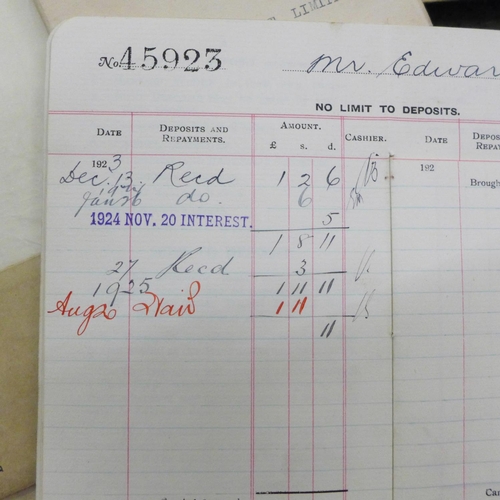 LIMITE
No. 45923 Mr. Edwar
NO LIMIT TO DEPOSITS.
DATE DEPOSITS AND REPAYMENTS. AMOUNT. £ s. d. CASHIER. DATE DEPOS REPA
1923 192
Dec. 13 Recd 1 2 6 Brough
1924
Jan 26 do. 6
1924 NOV. 20 INTEREST. 5
1 8 11
27 Recd 3
1925 1 11 11
Aug 26 Paid 1 11
11
Ca